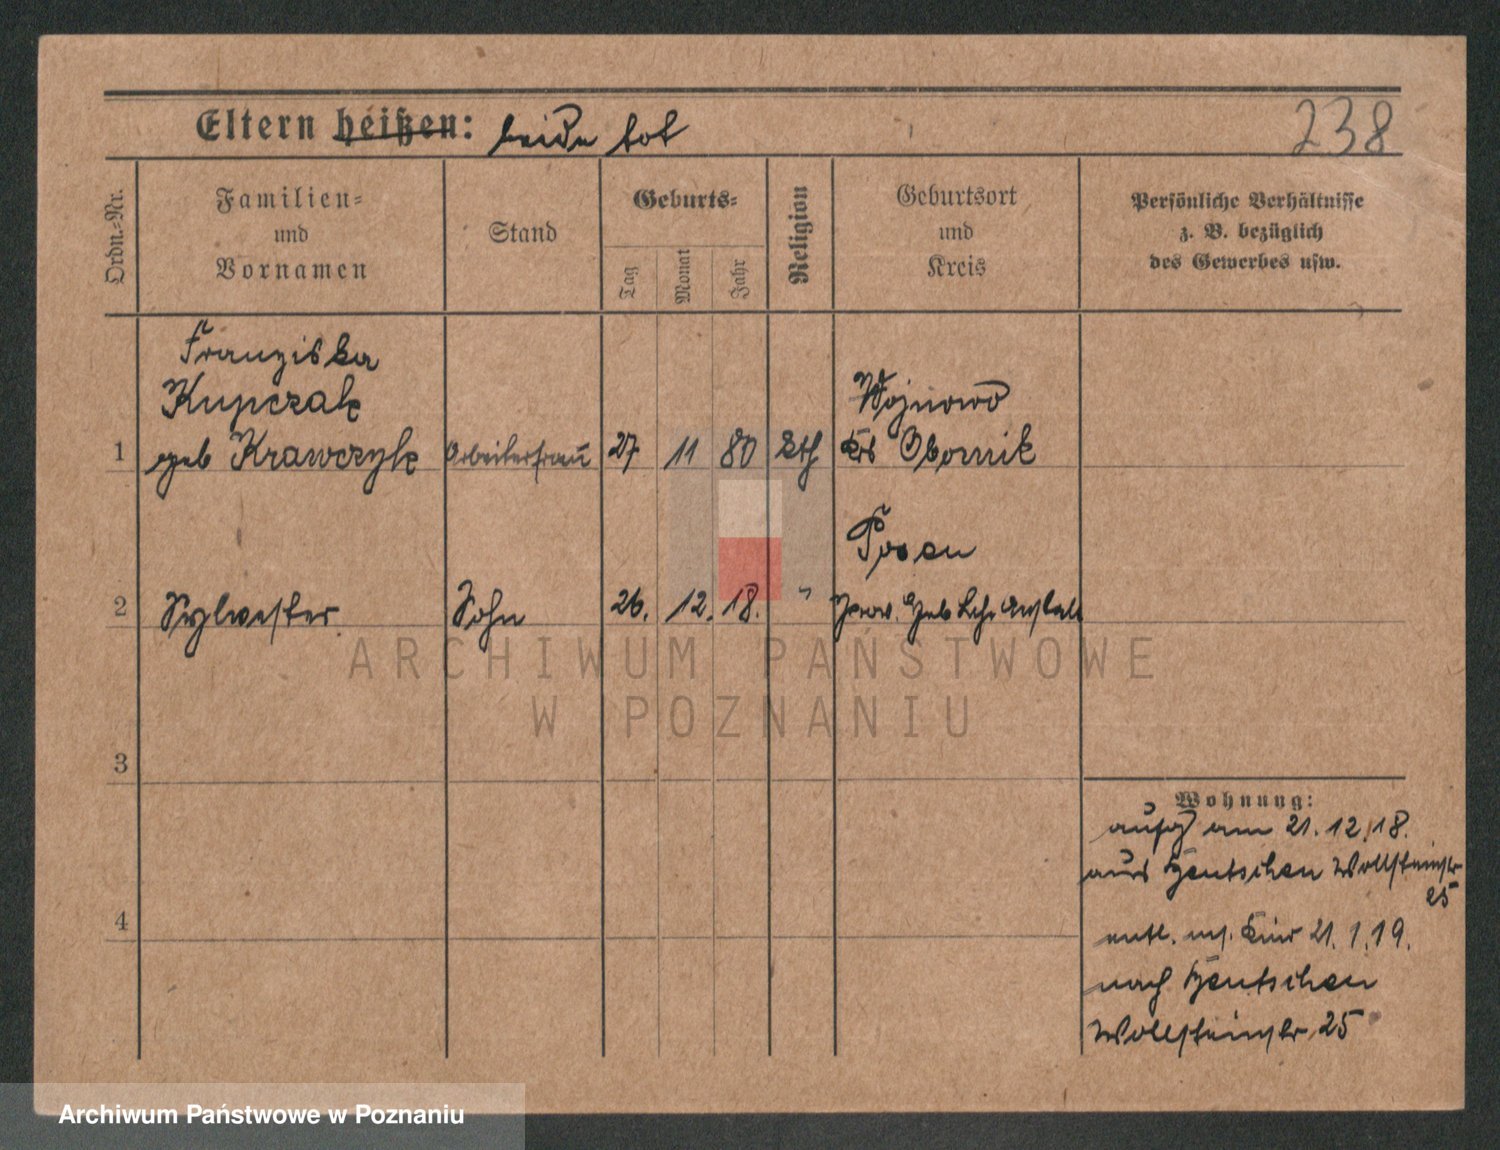 Eltern heißen: beide tot
238
Ordn.-Nr.
Familien-
und
Vornamen
Stand
Geburts-
Tag
Monat
Jahr
Religion
Geburtsort
und
Kreis
Persönliche Verhältnisse
z. B. bezüglich
des Gewerbes usw.
Franziska
Kupczak
1 geb Krawczyk Arbeiterfrau 27 11 80 kth
Wojnowo
Krs Obornik
2 Sylwester Sohn 26. 12. 18. "
Posen
Prov. Heb Lehr Anstalt
3
4
Wohnung:
aufg am 21.12.18.
aus Bentschen Wollsteinstr
25
entl. m. Kind 21.1.19.
nach Bentschen
Wollsteinstr 25
ARCHIWUM PAŃSTWOWE
W POZNANIU
Archiwum Państwowe w Poznaniu